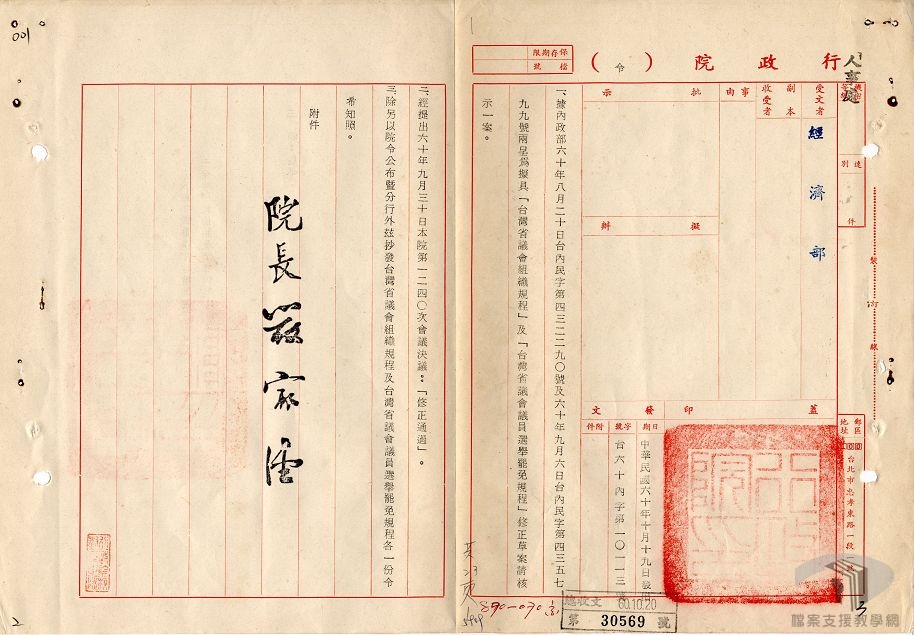 行政院（令）
保存期限
檔號
人事處
速別
件
受文者
經濟部
副本收受者
事由
批示
擬辦
蓋印
發文
日期
中華民國六十年十月十九日發出
字號
台六十內字第一〇一一三號
附件
裝訂線
郵區
地址
台北市忠孝東路一段
一、據內政部六十年八月二十日台內民字第四三二二九〇號及六十年九月六日台內民字第四三五七
九九號兩呈為擬具「台灣省議會組織規程」及「台灣省議會議員選舉罷免規程」修正草案請核
示一案。
二、經提出六十年九月三十日本院第一二四〇次會議決議：「修正通過」。
三、除另以院令公布暨分行外茲抄發台灣省議會組織規程及台灣省議會議員選舉罷免規程各一份令
希知照。
附件
院長嚴家淦
總收文 60.10.20
第 30569 號
890-070
001
1
2
3
檔案支援教學網